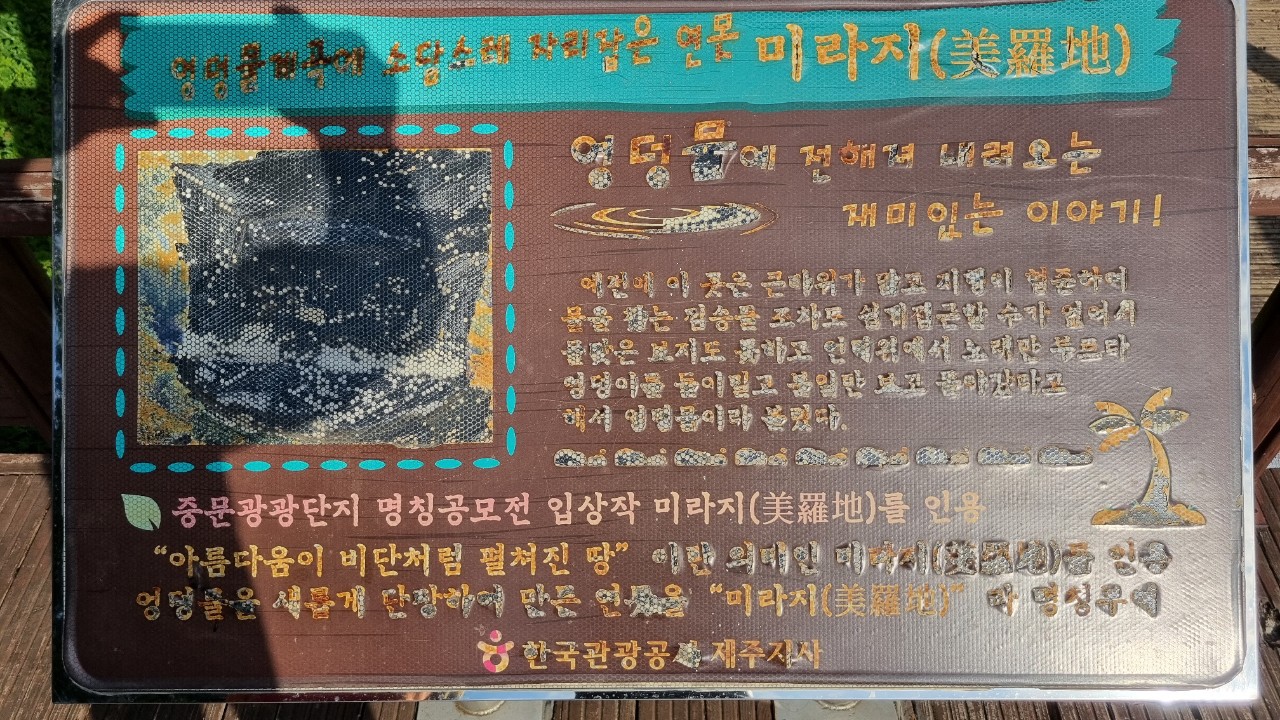 엉덩물계곡에 소담스레 자리잡은 연못 미라지(美羅地)
엉덩물에 전해져 내려오는
재미있는 이야기!
예전에 이 곳은 큰바위가 많고 지형이 험준하여
물을 찾는 짐승들 조차도 쉽게접근할 수가 없어서
물맞은 보지도 못하고 언덕위에서 노래만 부르다
엉덩이를 들이밀고 볼일만 보고 돌아갔다고
해서 엉덩물이라 불렸다.
중문광광단지 명칭공모전 입상작 미라지(美羅地)를 인용
“아름다움이 비단처럼 펼쳐진 땅” 이란 의미인 미라지(美羅地)를 인용
엉덩물을 새롭게 단장하여 만든 연못을 “미라지(美羅地)” 라 명칭부여
한국관광공사 제주지사